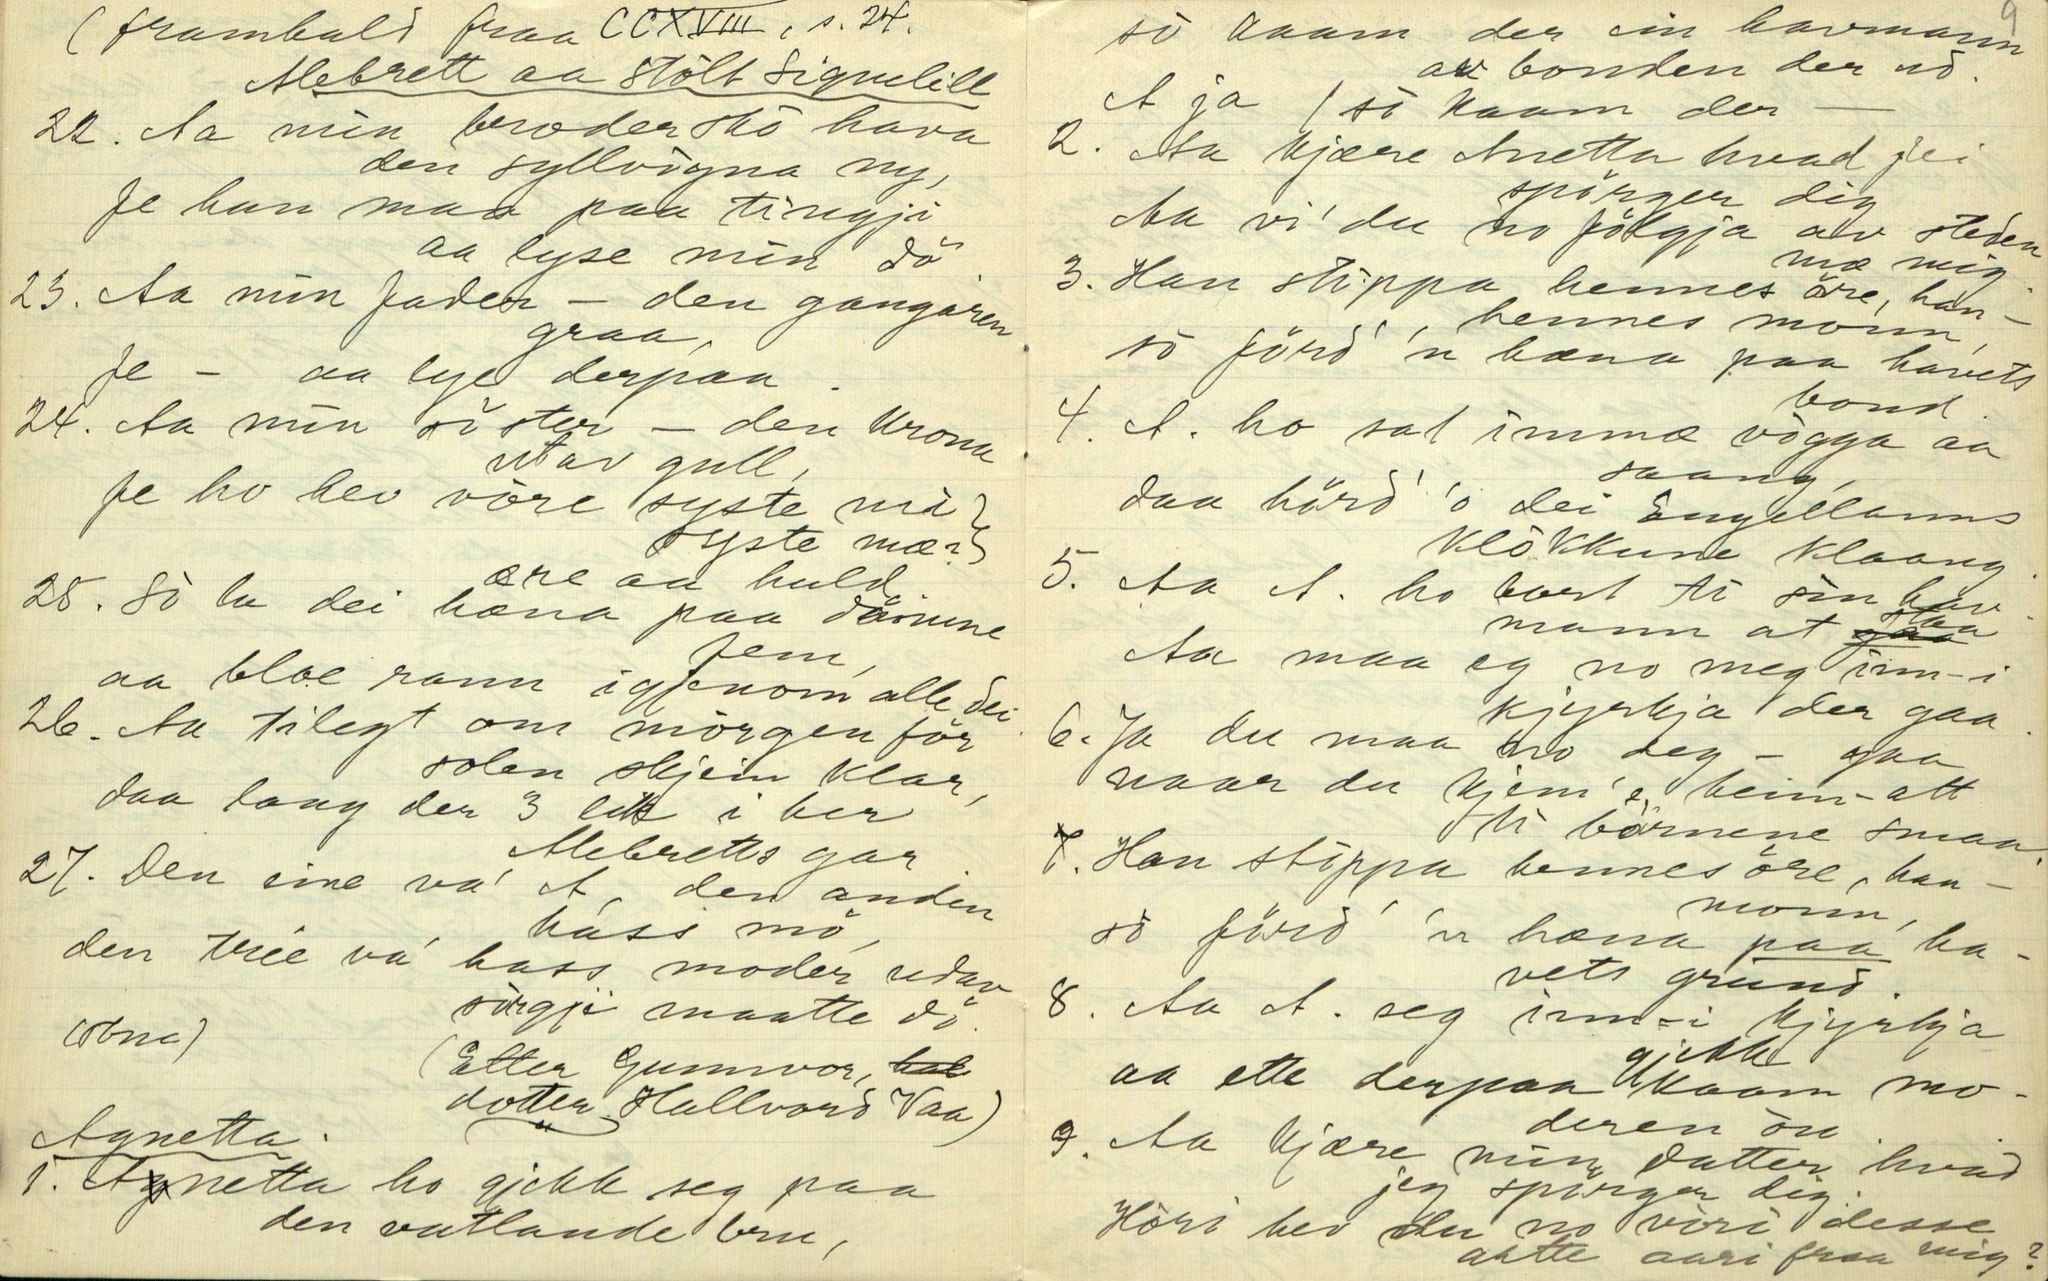 (frambald fraa CCXVIII, s. 24.
Alebrett aa stölt Signelill
22. Aa min broder skò hava
den syllvògna ny,
fe han maa paa tingji
aa lyse min dö.
23. Aa min fader – den gangaren
graa,
fe – aa lye derpaa.
24. Aa min sòster – den krona
utav gull,
fe ho hev vòre syste mi }
syste mæ }
ære aa huld.
25. Sò la dei hæna paa dòinne
fem,
aa bloe rann igjenom alle dei.
26. Aa tilegt om mòrgen för
solen skjein klar,
daa laag der 3 lik i her
Alebretts gar
27. Den eine va' A, den anden
hass mö,
den trïe va' hass moder udav
sòrgji maatte dö.
(Etter Gunnvor,
dotter Hallvord Vaa)
Agnetta.
1. Agnetta ho gjekk seg paa
den vatlande bru,
9
sò kaam der ein havmann
av bonden der ud.
A ja / sò kaam der —
2. Aa kjære Anetta hvad jei
spörger dig
Aa vi' du no fölgja av steden
mæ mig
3. Han stòppa hennes öre, han –
hennes monn,
sò förd' 'n hæna paa havets
bond.
4. A. ho sat immæ vògga aa
saang,
daa hörd' 'o dei Engellanns
klòkkune klaang.
5. Aa A. ho bad ti sin hav-
mann at staa
Aa maa eg no meg inn-i
kjyrkja der gaa.
6. Ja du maa no deg – gaa
naar du kjem'e heim-att
ti börnene smaa.
7. Han stòppa hennes öre, han –
monn,
sò förd' 'n hæna paa ha-
vets grund.
8. Aa A. seg inn-i kjyrkja
gjekk
aa ette derpaa kaam mo-
deren òu.
9. Aa kjære min datter hvad
jeg spörger dig.
Hòri hev du no vòri desse
aatte aari fraa mig?